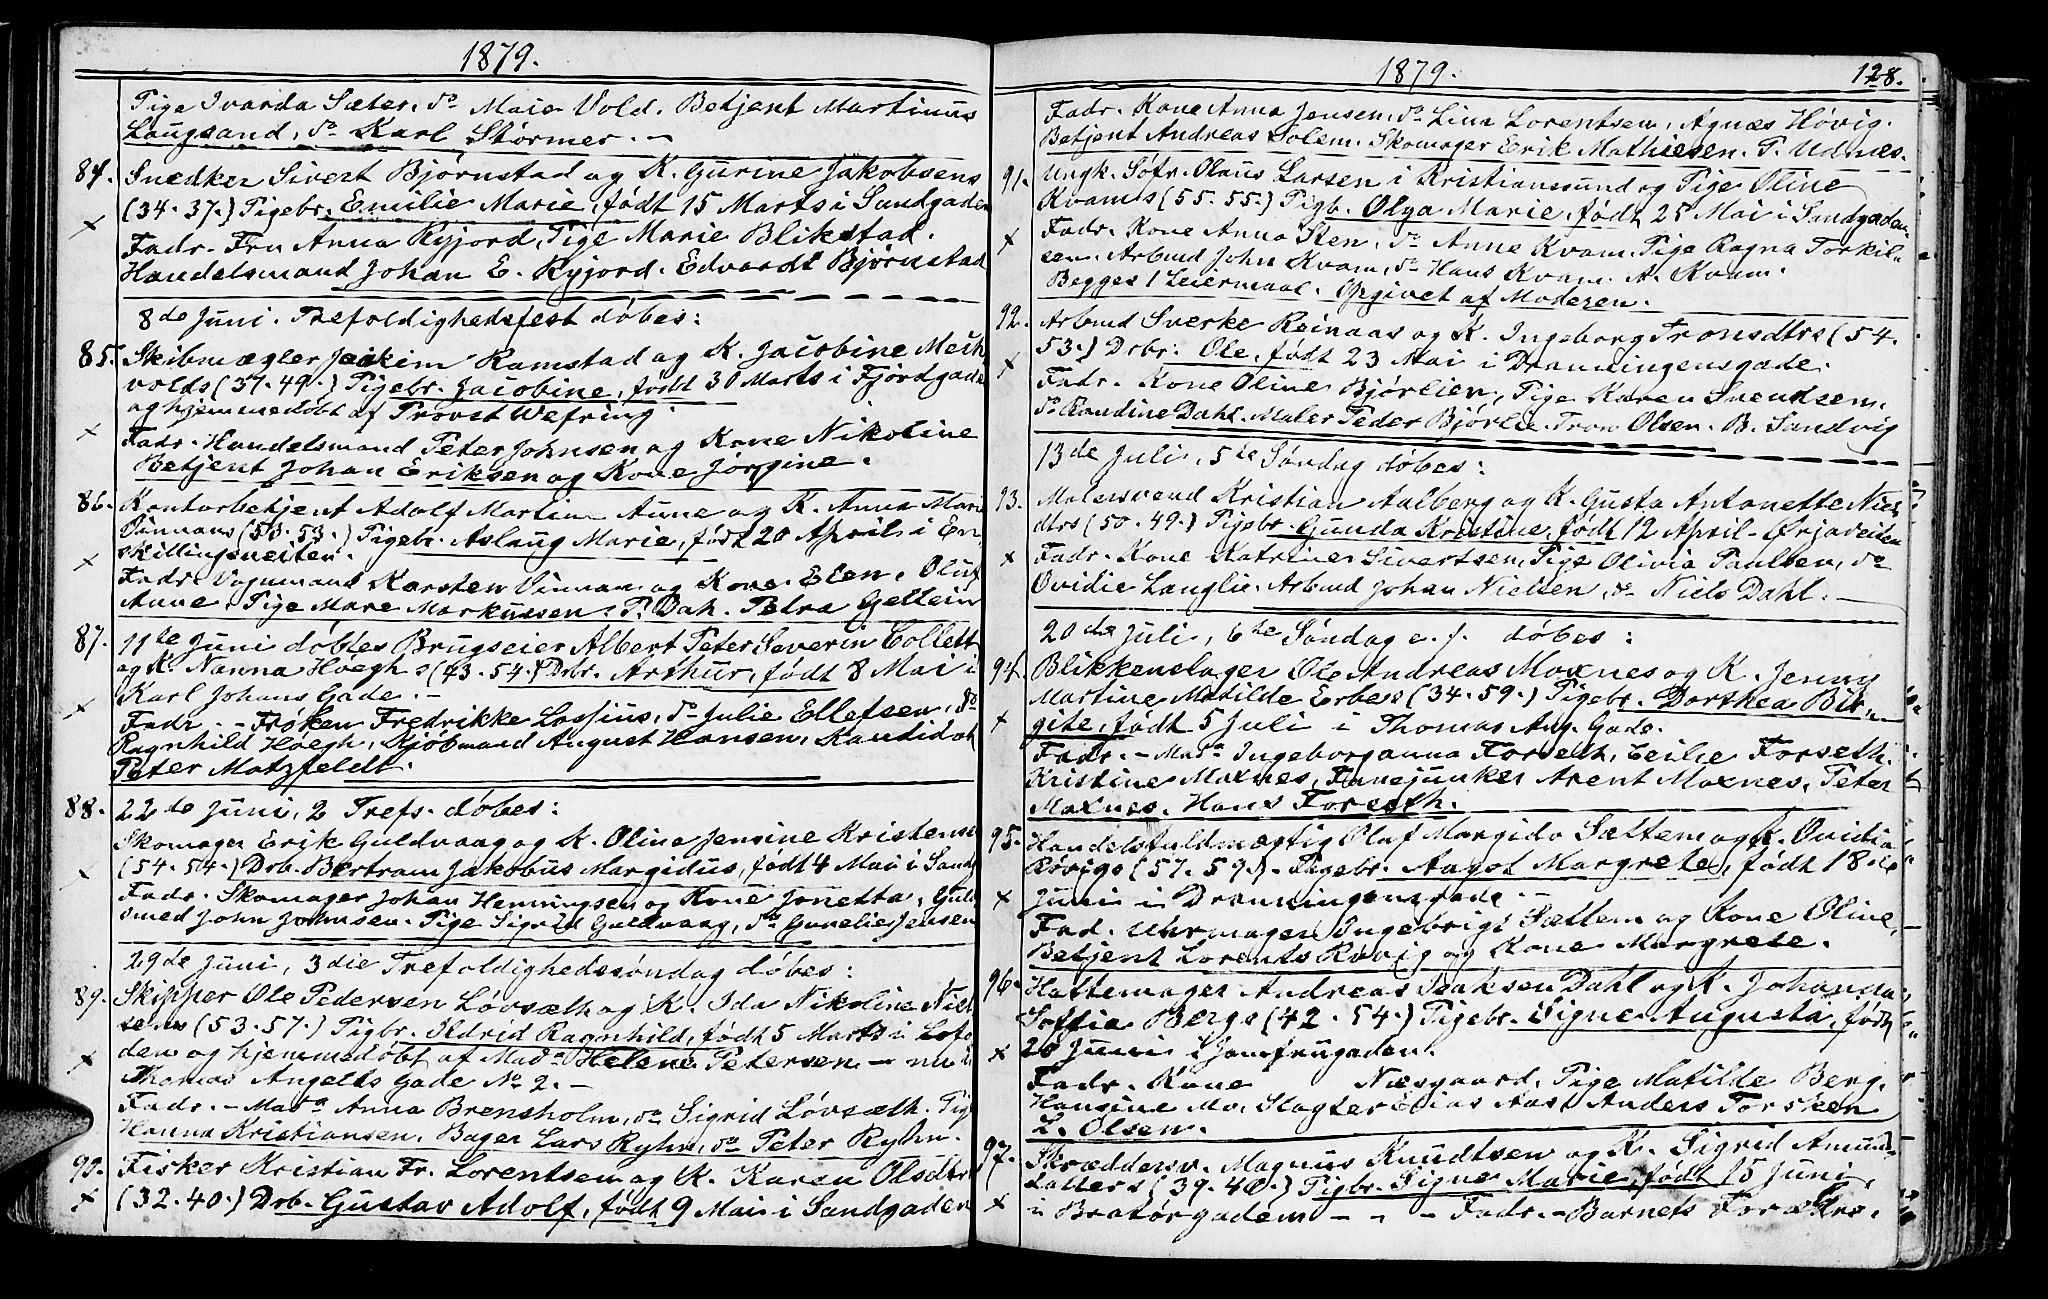 1879.
Pige Ivarda Sæter, do Maie Vold. Betjent Martinus
Laugsand, do Karl Størmer. -
84. Snedker Sivert Bjørnstad og K. Gurine Jakobsens
(34-37.) Pigebr. Emilie Marie, født 15 Marts i Sandgaden
Fadr. Fru Anna Ryjord, Pige Marie Blikstad.
Handelsmand Johan E. Ryjord. Edvardt Bjørnstad
8de Juni. Trefoldighedsfest døbes:
85. Skibmægler Joakim Ramstad og K. Jacobine Meck
volds (37.49.) Pigebr. Jacobine, født 30 Marts i Fjordgade
og hjemmedøbt af Provst Wefring.
Fadr. Handelsmand Peter Johnsen og Kone Nikoline
Betjent Johan Eriksen og Kone Jørgine.
86. Kontorbetjent Adolf Martin Aune og K. Anna Mari
Vinnans (53.53.) Pigebr. Aslaug Marie, født 20 April i En
skillingsveiten.
Fadr. Vognmand Karsten Vinnan og Kone Elen, Oluf
Aune, Pige Mare Markussen. P. Dah. Petra Gellein
87. 11te Juni døbtes Brugseier Albert Peter Severin Collett
og K. Nanna Høegh s (43.54.) Drbr. Arthur, født 8 Mai i
Karl Johans Gade. -
Fadr. - Frøken Fredrikke Lossius, do Julie Ellefsen, do
Ragnhild Høegh, Kjøbmand August Hansen, Kandidat
Peter Motzfeldt.
88. 22de Juni, 2 Trefs. døbes:
Skomager Erik Guldvaag og K. Oline Jensine Kristens
(54.54.) Drb. Bertram Jakobus Margidus, født 4 Mai i Sand
Fadr. Skomager Johan Henningsen og Kone Jonetta, Guld
smed John Johnsen. Pige Sigrid Guldvaag, do Gunelie Jensen
29de Juni, 3die Trefoldighedssøndag døbes:
89. Skipper Ole Pedersen Løvsæth og K. Ida Nikoline Niel
sens (53.57.) Pigbr. Oldrid Ragnhild, født 5 Marts i Lofo
den og hjemmedøbt af Mada Helene Petersen - nu i
Thomas Angells Gade No 2. -
Fadr. - Mada Anna Brensholm, do Sigrid Løvsæth. Pige
Hanna Kristiansen, Bager Lars Ryhn, do Peter Ryhn.
90. Fisker Kristian Fr. Lorentsen og K. Karen Olsdtrs
(32.40.) Drb. Gustav Adolf, født 9 Mai i Sandgaden
1879.
128.
Fadr. Kone Anna Jensen, do Lina Lorentsen, Agnæs Høvig.
Betjent Andreas Solem. Skomager Erik Mathiesen. P. Udnæs.
91. Ungk. Søfr. Olaus Larsen i Kristiansund og Pige Oline
Kvams (55.55.) Pigb. Olga Marie, født 25 Mai i Sandgaden.
Fadr. Kone Anna Sten, do Anne Kvam. Pige Ragna Torkil-
sen. Arbmd John Kvam, do Hans Kvam. A. Kvam.
Begges 1 Leiermaal. Opgivet af Moderen.
92. Arbmd Sverke Reinaas og K. Ingeborg Tronsdtrs (54.
53.) Drbr. Ole, født 23 Mai i Dronningensgade.
Fadr. Kone Oline Bjørlien, Pige Karen Svendsen.
do Randine Dahl. Maler Peder Bjørlie. Tron Olsen. B. Sandvig
13de Juli, 5te Søndag døbes:
93. Malersvend Kristian Aalberg og K. Gusta Antonette Niels
dtrs (50.49.) Pigebr. Gunda Kristine, født 12 April - Ørjaveiten
Fadr. Kone Katrine Sivertsen, Pige Olivia Paulsen, do
Ovidie Langlie. Arbmd Johan Nielsen, do Niels Dahl. -
20de Juli, 6te Søndag e. f. døbes:
94. Blikkenslager Ole Andreas Moxnes og K. Jenny
Martine Matilde Erbes (34.59.) Pigebr. Dorthea Bir-
gite, født 5 Juli i Thomas Ang. Gade.
Fadr. - Mada Ingeborganna Forseth, Cecilie Forseth.
Kristine Moxnes, Fanejunker Arent Moxnes, Peter
Moxnes. Hans Forseth.
95. Handelsfuldmægtig Olaf Margido Sættem og K. Ovidia
Røvigs (57.59.) Pigebr. Aagot Margrete, født 18de
Juni i Dronningensgade. -
Fad. Uhrmager Ingebrigt Sættem og Kone Oline,
Betjent Lorents Røvig og Kone Margrete.
96. Hattemager Andreas Isaksen Dahl og K. Johanna
Soffie Bergs (42.54.) Pigebr. Signe Augusta, født
20 Juni i Jomfrugaden.
Fadr. Kone Næsgaard, Pige Matilde Berg.
Hansine Mo. Slagter Elias Aas. Anders Forsken
L. Olsen.
97. Skræddersv. Magnus Knudtsen og K. Sigrid Amund-
datters (39.40.) Pigbr. Signe Marie, født 15 Juni,
i Bratørgaden - - - Fadr. - Barnets Forældre.